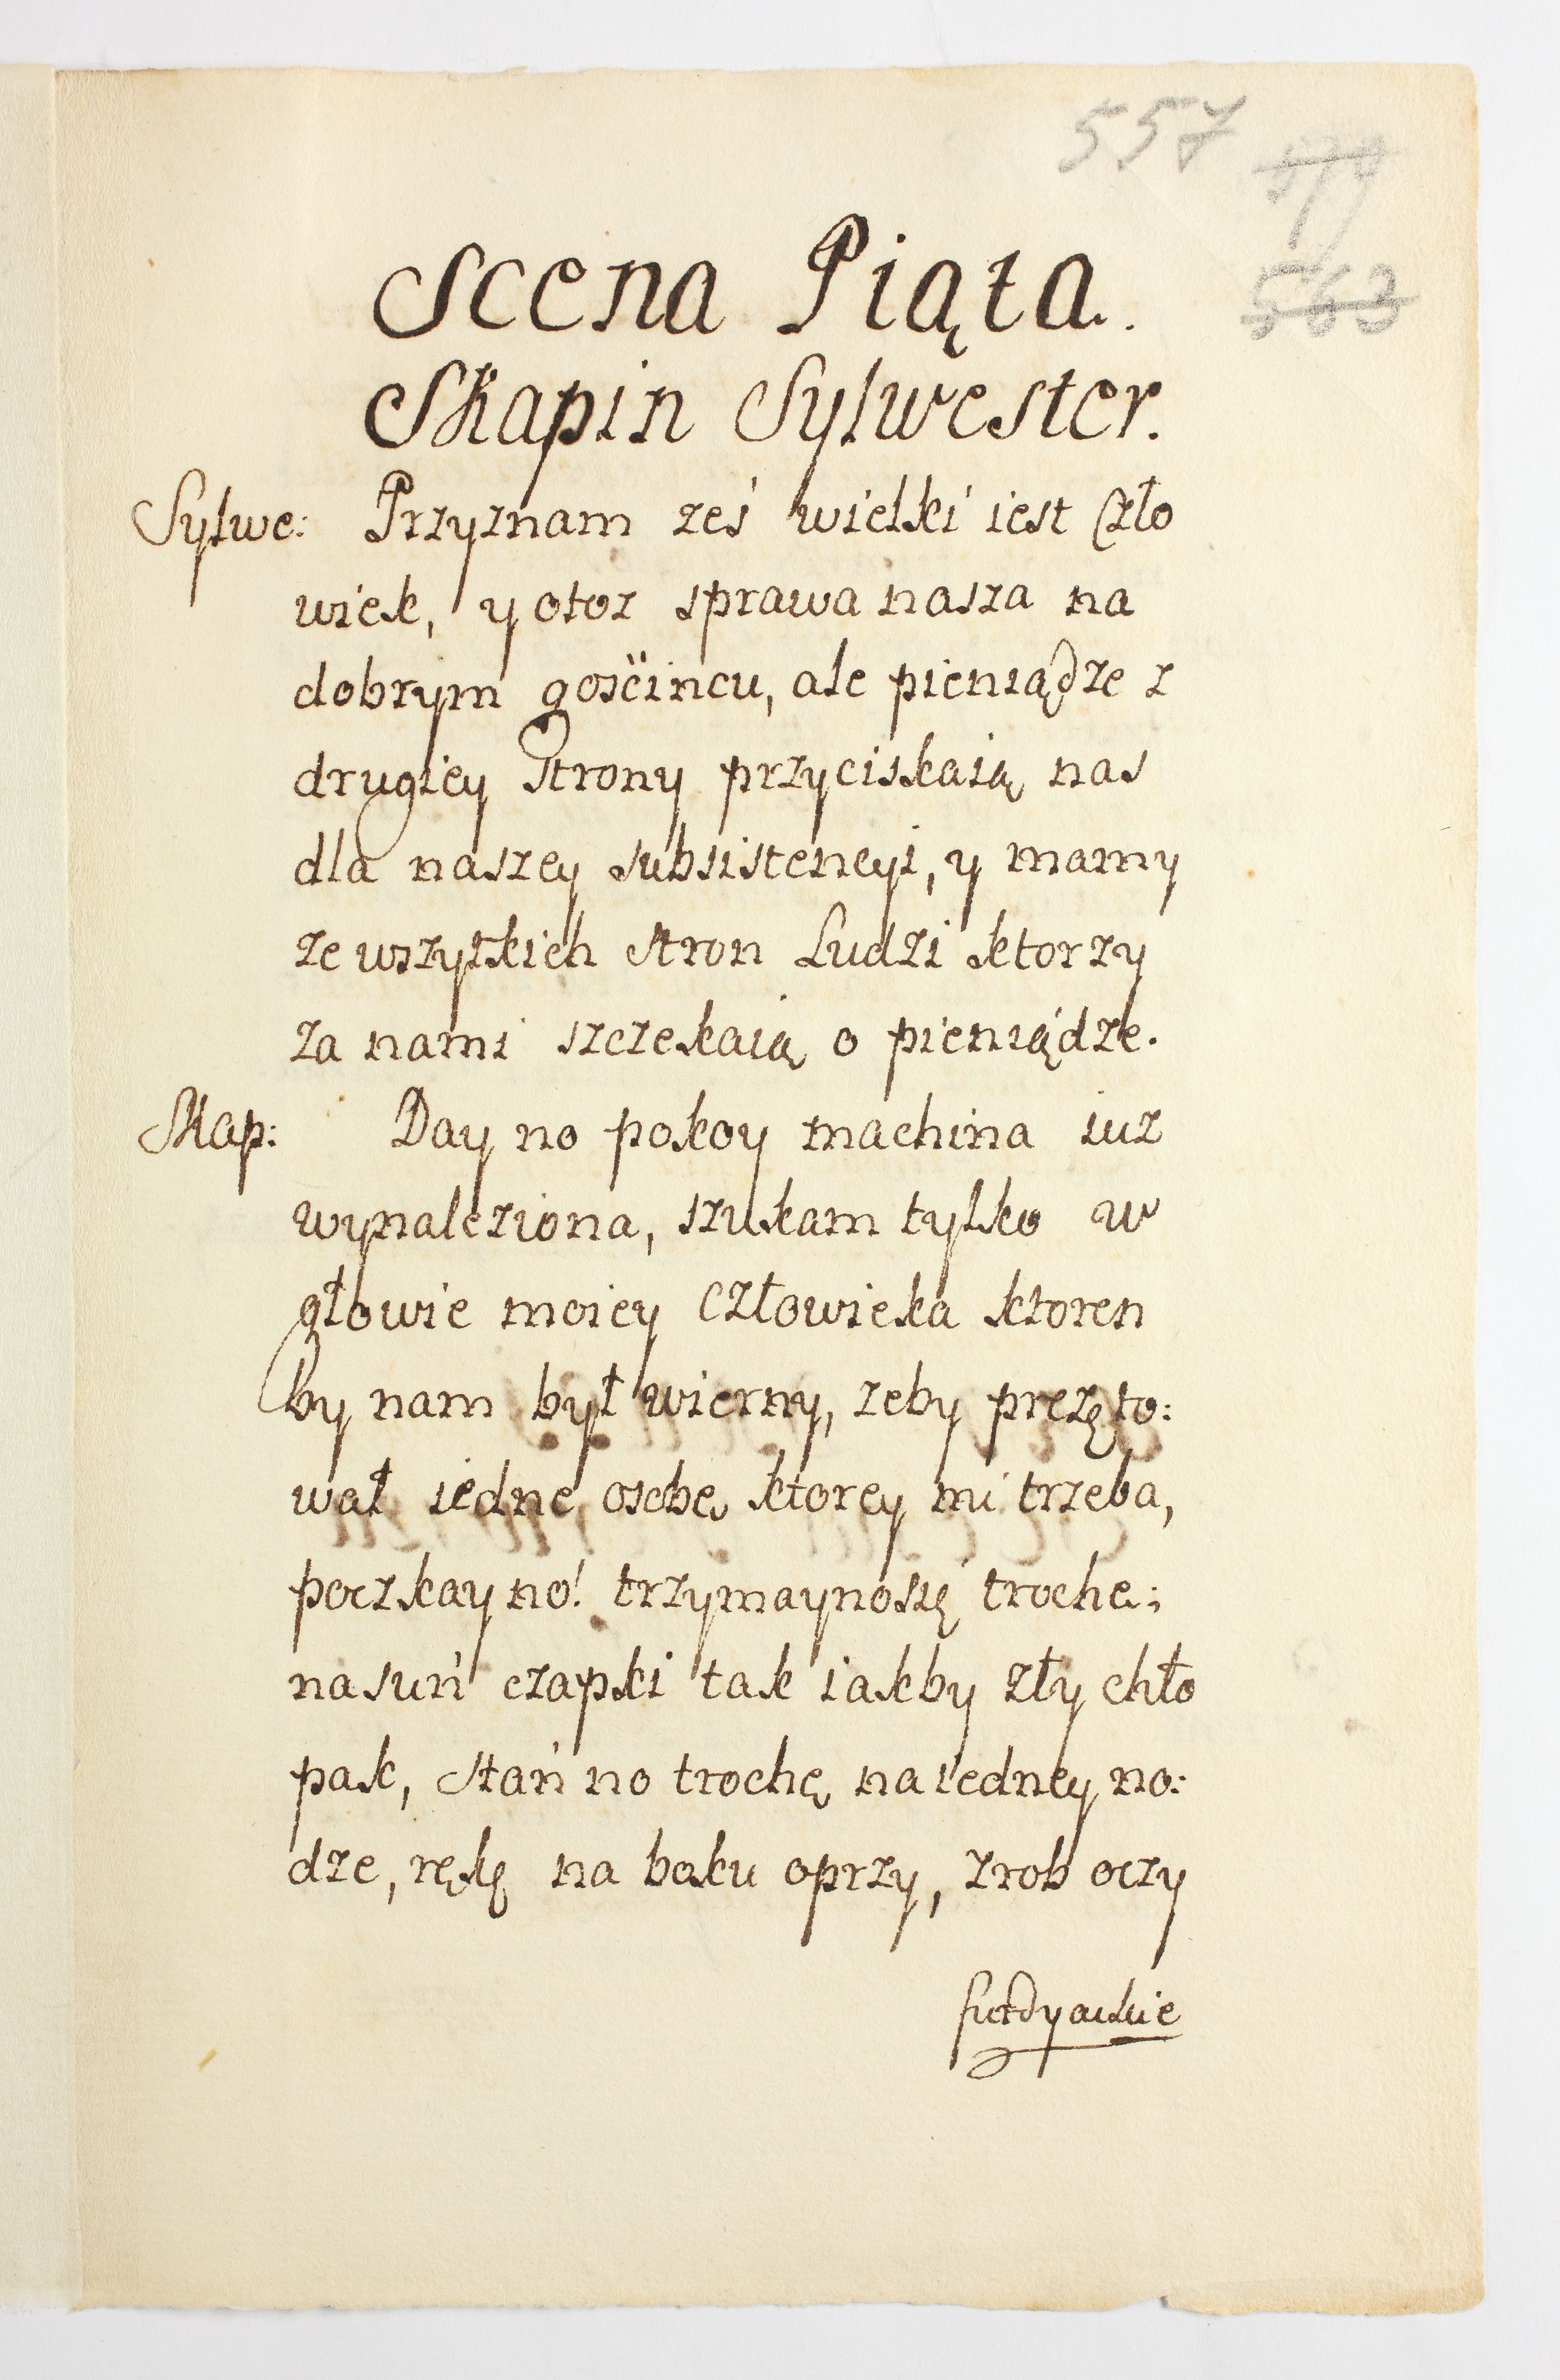 557
563
Scena Piąta.
Skapin Sylwester.
Sylwe: Przyznam ześ wielki iest Czło
wiek, y otoz sprawa nasza na
dobrym gościncu, ale pieniądze z
drugiey strony przyciskaią nas
dla naszey subsistencyi, y mamy
ze wszyzkich stron Ludzi ktorzy
za nami szczekaią o pieniądze.
Skap: Day no pokoy machina iuz
wynaleziona, szukam tylko w
głowie moiey Człowieka ktoren
by nam był wierny, zeby prezęto:
wał iednę osobę ktorey mi trzeba,
poczkay no! trzymaynosię trochę;
nasuń czapki tak iakby zły chło
pak, stań no trochę na iedney no:
dze, rękę na boku oprzy, zrob oczy